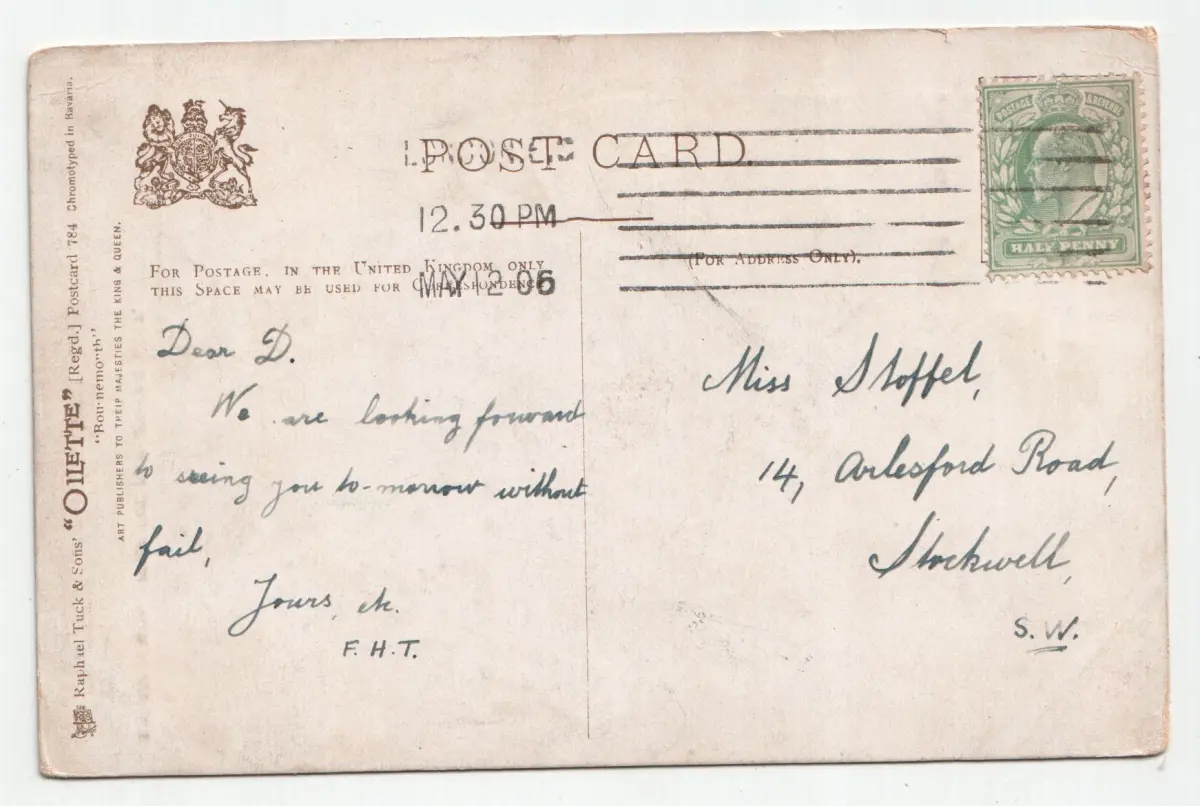 POST CARD.
12.30 PM
MAY 12 06
FOR POSTAGE, IN THE UNITED KINGDOM ONLY
THIS SPACE MAY BE USED FOR CORRESPONDENCE
(FOR ADDRESS ONLY).
POSTAGE & REVENUE
HALF PENNY
Dear D.
We are looking forward
to seeing you to-morrow without
fail,
Yours, etc.
F.H.T.
Miss Stoffel,
14, Arlesford Road,
Stockwell,
S.W.
Raphael Tuck & Sons' "OILETTE" [Regd.] Postcard 784 Chromotyped in Bavaria.
ART PUBLISHERS TO THEIR MAJESTIES THE KING & QUEEN.